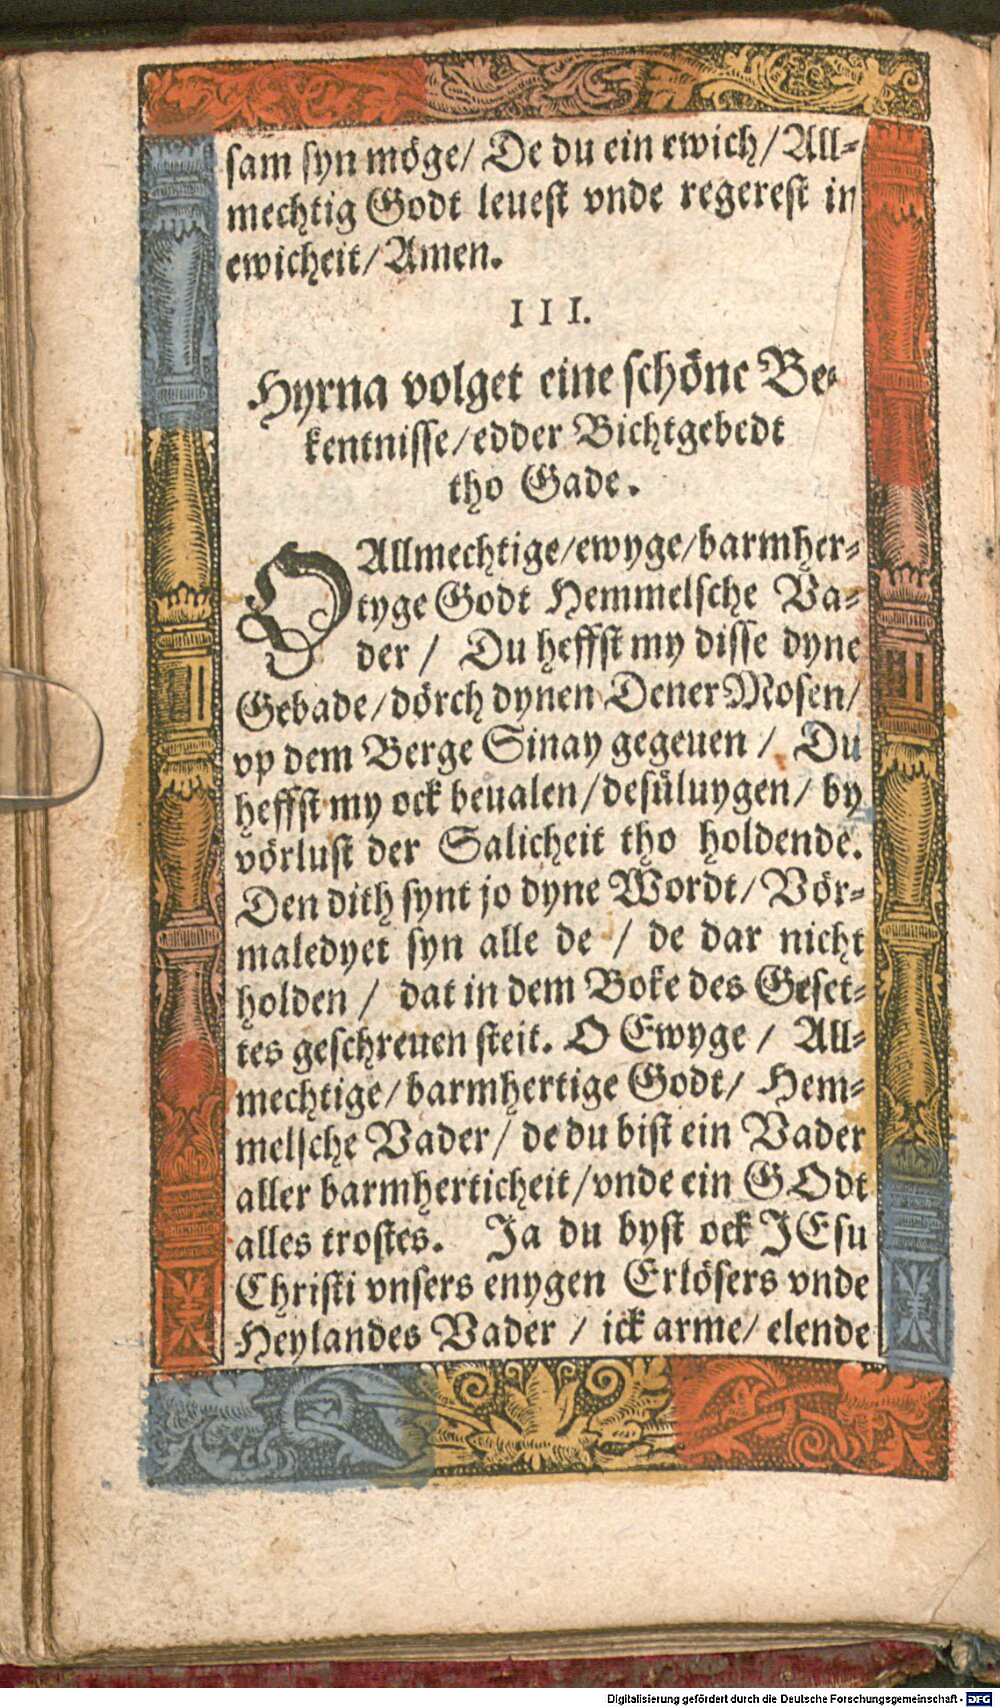 sam syn möge/ De du ein ewich/ All-
mechtig Godt leuest vnde regerest in
ewicheit/ Amen.
III.
Hyrna volget eine schöne Be-
kentnisse/ edder Bichtgebedt
tho Gade.
O Allmechtige/ ewyge/ barmher-
tyge Godt Hemmelsche Va-
der/ Du heffst my disse dyne
Gebade/ dörch dynen Dener Mosen/
vp dem Berge Sinay gegeuen/ Du
heffst my ock beualen/ desüluygen/ by
vörlust der Salicheit tho holdende.
Den dith synt jo dyne Wordt/ Vör-
maledyet syn alle de/ de dar nicht
holden/ dat in dem Boke des Geset-
tes geschreuen steit. O Ewyge/ All-
mechtige/ barmhertige Godt/ Hem-
melsche Vader/ de du bist ein Vader
aller barmherticheit/ vnde ein GOdt
alles trostes. Ja du byst ock JEsu
Christi vnsers enygen Erlösers vnde
Heylandes Vader/ ick arme/ elende
Digitalisierung gefördert durch die Deutsche Forschungsgemeinschaft - DFG